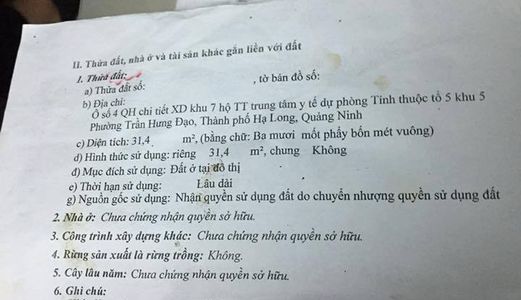 II. Thửa đất, nhà ở và tài sản khác gắn liền với đất
1. Thửa đất:
a) Thửa đất số: , tờ bản đồ số:
b) Địa chỉ:
Ô số 4 QH chi tiết XD khu 7 hộ TT trung tâm y tế dự phòng Tỉnh thuộc tổ 5 khu 5
Phường Trần Hưng Đạo, Thành phố Hạ Long, Quảng Ninh
c) Diện tích: 31,4 m², (bằng chữ: Ba mươi mốt phẩy bốn mét vuông)
d) Hình thức sử dụng: riêng 31,4 m², chung Không
đ) Mục đích sử dụng: Đất ở tại đô thị
e) Thời hạn sử dụng: Lâu dài
g) Nguồn gốc sử dụng: Nhận quyền sử dụng đất do chuyển nhượng quyền sử dụng đất
2. Nhà ở: Chưa chứng nhận quyền sở hữu.
3. Công trình xây dựng khác: Chưa chứng nhận quyền sở hữu.
4. Rừng sản xuất là rừng trồng: Không.
5. Cây lâu năm: Chưa chứng nhận quyền sở hữu.
6. Ghi chú: